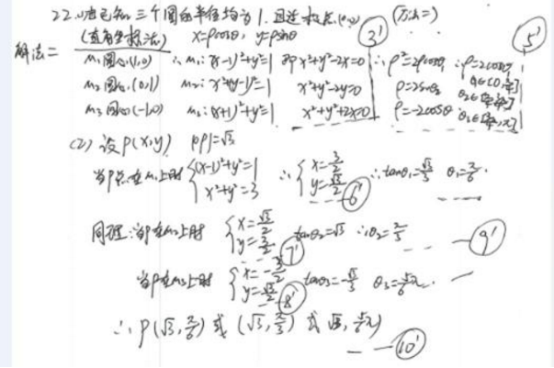 22.(1)由已知三个圆的半径均为1,且过极点(0,0) (方法二)
解法二 (直角坐标法) x=ρcosθ, y=ρsinθ 3' 5'
M₁圆心(1,0) ∴M₁:(x-1)²+y²=1 即x²+y²-2x=0 ∴ρ²=2ρcosθ, ∴ρ=2cosθ, θ∈[0,π/4]
M₂圆心(0,1) M₂:x²+(y-1)²=1 x²+y²-2y=0 ρ=2sinθ
M₃圆心(-1,0) M₃:(x+1)²+y²=1 x²+y²+2x=0 ρ=-2cosθ
(2)设P(x,y) |OP|=√3
当P点在M₁上时 {(x-1)²+y²=1 x²+y²=3 ∴{x=3/2 y=√3/2 6' ∴tanθ₁=√3/3 θ₁=π/6
同理:当P在M₂上时 {x=√3/2 y=3/2 7' tanθ₂=√3 ∴θ₂=π/3 9'
当P在M₃上时 {x=-3/2 y=√3/2 8' tanθ₃=-√3/3 θ₃=5/6π
∴P(√3,π/6)或(√3,π/3)或(√3,5/6π)
10'